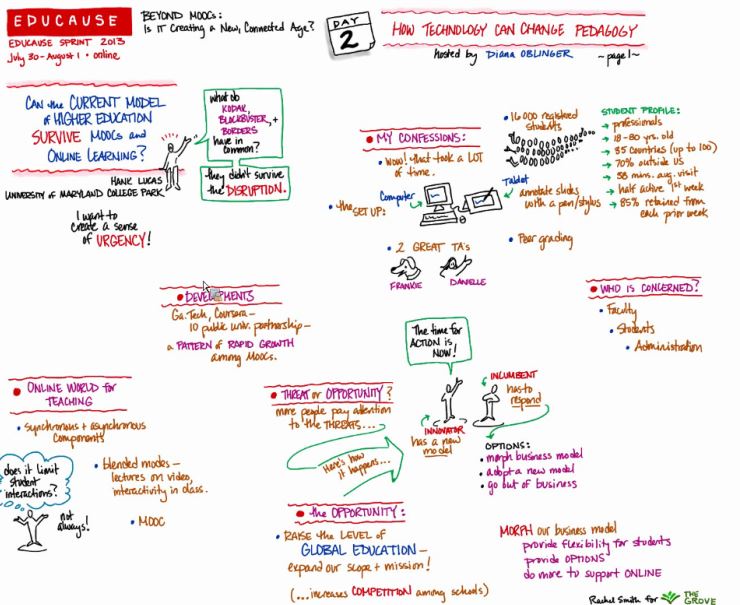 EDUCAUSE
EDUCAUSE SPRINT 2013
July 30-August 1 • online
BEYOND MOOCs:
Is IT Creating a New, Connected Age?
DAY
2
HOW TECHNOLOGY CAN CHANGE PEDAGOGY
hosted by Diana OBLINGER
~page 1~
CAN the CURRENT MODEL
of HIGHER EDUCATION
SURVIVE MOOCs and
ONLINE LEARNING?
HANK LUCAS
UNIVERSITY OF MARYLAND COLLEGE PARK
I want to
create a sense
of URGENCY!
what do
KODAK,
BLOCKBUSTER, +
BORDERS
have in
common?
they didn't survive
the DISRUPTION.
• MY CONFESSIONS:
• wow! that took a LOT
of time.
• the SET UP:
Computer
Tablet
annotate slides
with a pen/stylus
• 2 GREAT TA's
FRANKIE
DANIELLE
• 16 000 registered
students
• Peer grading
STUDENT PROFILE:
→ professionals
→ 18-80 yrs. old
→ 85 countries (up to 100)
→ 70% outside US
→ 58 mins. avg. visit
→ half active 1st week
→ 85% retained from
each prior week
• DEVELOPMENTS
Ga. Tech, Coursera -
10 public univ. partnership -
a PATTERN of RAPID GROWTH
among MOOCs.
• WHO IS CONCERNED?
• Faculty
• Students
• Administration
• ONLINE WORLD for
TEACHING
• synchronous + asynchronous
components
• blended modes -
lectures on video,
interactivity in class.
• MOOC
does it limit
student
interactions?
not
always!
• THREAT or OPPORTUNITY?
more people pay attention
to the THREATS...
Here's how
it happens...
The time for
ACTION is
NOW!
INNOVATOR
has a new
model
INCUMBENT
has to
respond
OPTIONS:
• morph business model
• adopt a new model
• go out of business
• the OPPORTUNITY:
• RAISE the LEVEL of
GLOBAL EDUCATION -
expand our scope + mission!
(...increases COMPETITION among schools)
MORPH our business model
provide flexibility for students
provide OPTIONS
do more to support ONLINE
Rachel Smith for THE
GROVE